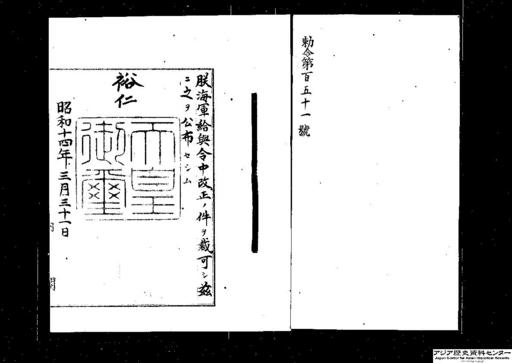 勅令第百五十一號
朕海軍給與令中改正ノ件ヲ裁可シ茲
ニ之ヲ公布セシム
裕仁
天皇御璽
昭和十四年三月三十一日
内閣
アジア歴史資料センター
Japan Center for Asian Historical Records